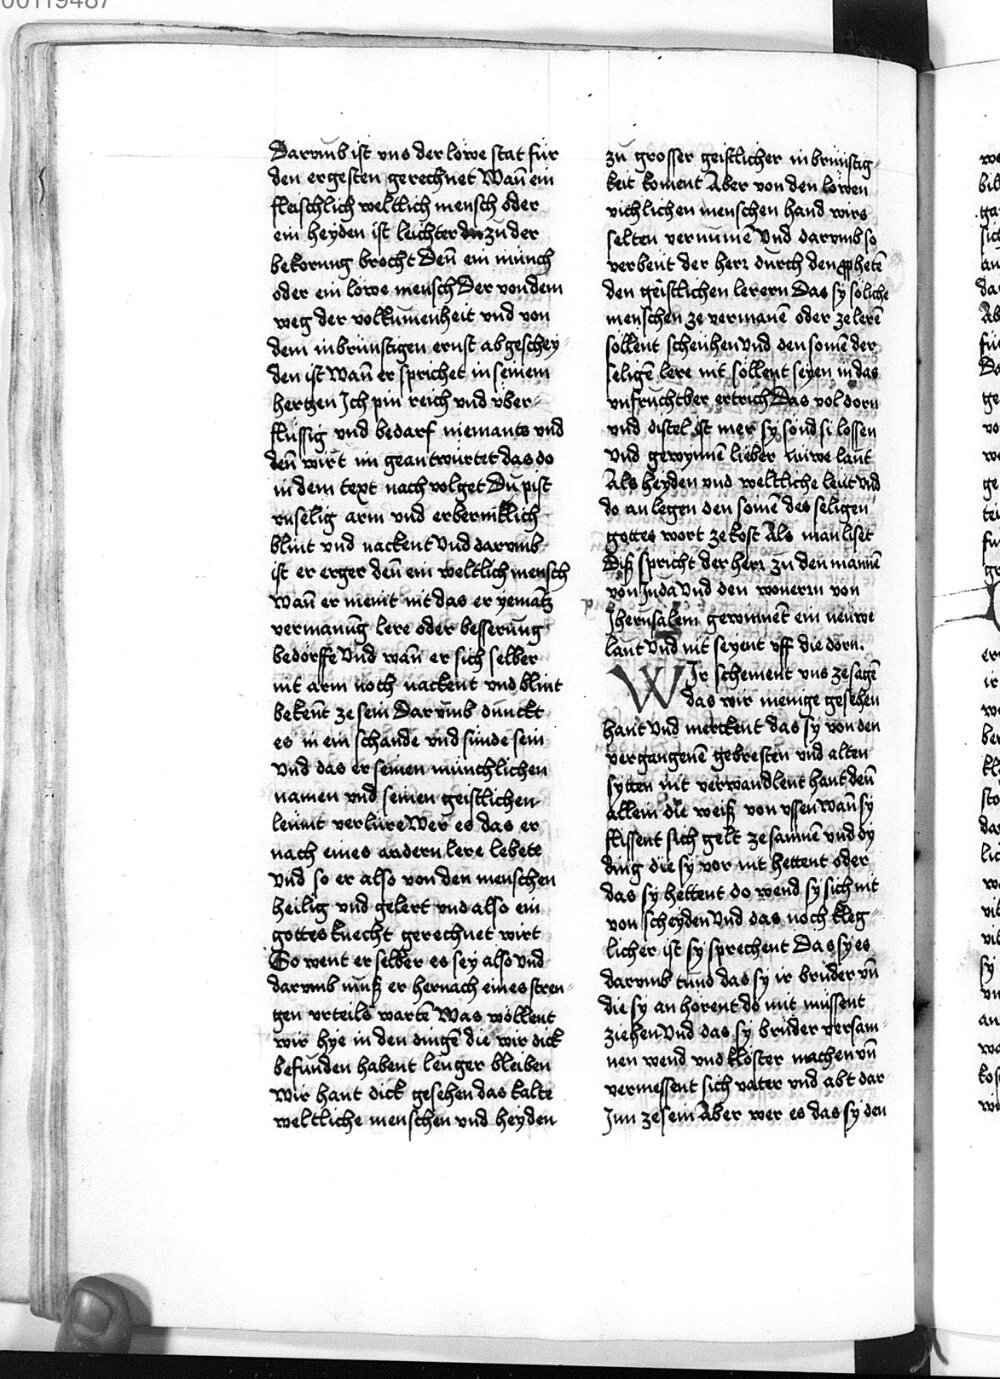 00119487
Darumb ist uns der lowe stat für
den ergesten gerechnet Wañ ein
fleischlich weltlich mensch oder
ein heyden ist leichter zu der
bekorung brocht Deñ ein münch
oder ein lowe mensch Der von dem
weg der volkumenheit und von
dem inbrünstigen ernst abgeschey
den ist Wañ er sprichet in seinem
hertzen Ich pin reich und über-
flüssig und bedarf niemants und
deñ wirt im geantwürtet das do
in dem text nach volget Du pist
unselig arm und erbermklich
blint und nackent Und darumb
ist er erger deñ ein weltlich mensch
Wañ er meint nit das er yemātz
vermanūg lere oder besserūg
bedorffe Und wañ er sich selber
nit arm noch nackent und blint
bekeñt ze sein Darumb dunckt
es in ein schande und sünde sein
Und das er seinen münchlichen
namen und seinen geistlichen
leümt verlüre Wer es das er
nach eines andern lere lebete
Und so er also von den menschen
heilig und gelert und also ein
gottes knecht gerechnet wirt
So went er selber es sey also Und
darumb muß er hernach eines stren-
gen urteils wartē Was wöllent
wir hye in den dingē die wir dick
befunden habent lenger bleiben
Wir hant dick gesehen das kalte
weltliche menschen und heyden
zu grosser geistlicher inbrünstig-
keit koment Aber von den lowen
vichlichen menschen hand wirs
selten vernumē Und darumb so
verbeüt der herr durch den ꝓphetē
den geistlichen lerern Das sy soliche
menschen ze vermanē oder ze lerē
söllent scheühen Und den somē der
seligē lere nit söllent seyen in das
unfruchtber ertrich Das vol dorn
und distel ist mer sy sönd si lossen
Und gewynnen lieber nuwe lant
Als heyden und weltliche leüt Und
do an legen den somē des seligen
gottes wort ze kost Als man liset
Diß spricht der herr zu den mannē
von Juda Und den wonern von
Jherusalem gewinnent ein neüwe
lant Und nit seyent uff die dorn.
Wir schement uns ze sagē
das wir menige gesehen
hant Und merckent das sy von den
vergangenē gebresten und alten
sytten nit verwandlent hant deñ
allein die weiß von ussen Wañ sy
flissent sich gelt ze samnē und dy
ding die sy vor nit hettent oder
das sy hettent do wend sy sich nit
von scheyden Und das noch kleg-
licher ist sy sprechent Das sy es
darumb tund das sy ir brüder uñ
die sy an horent do mit müssent
ziehen Und das sy brüder versam-
nen wend und klöster machen uñ
vermessent sich vater und abt dar
Inn ze sein Aber wer es das sy den